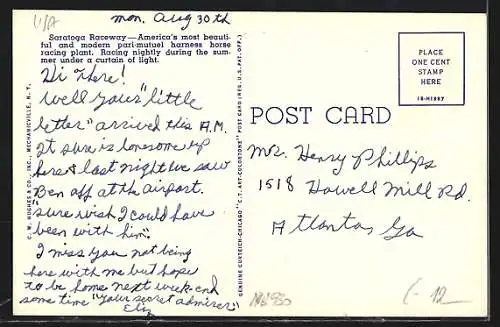 USA
mon. Aug 30th
Saratoga Raceway—America's most beauti-
ful and modern pari-mutuel harness horse
racing plant. Racing nightly during the sum-
mer under a curtain of light.
Hi There!
Well your "little
letter" arrived this A.M.
It sure is lonesome up
here & last night we saw
Ben off at the airport.
"Sure wish I could have
been with him".
I miss you not being
here with me but hope
to be home next week end
some time "Your secret admirer"
C. W. HUGHES & CO., INC., MECHANICVILLE, N. Y.
GENUINE CURTEICH-CHICAGO "C.T. ART-COLORTONE" POST CARD (REG. U.S. PAT. OFF.)
PLACE
ONE CENT
STAMP
HERE
POST CARD
Mr. Henry Phillips
1518 Howell Mill Rd.
Atlanta, Ga